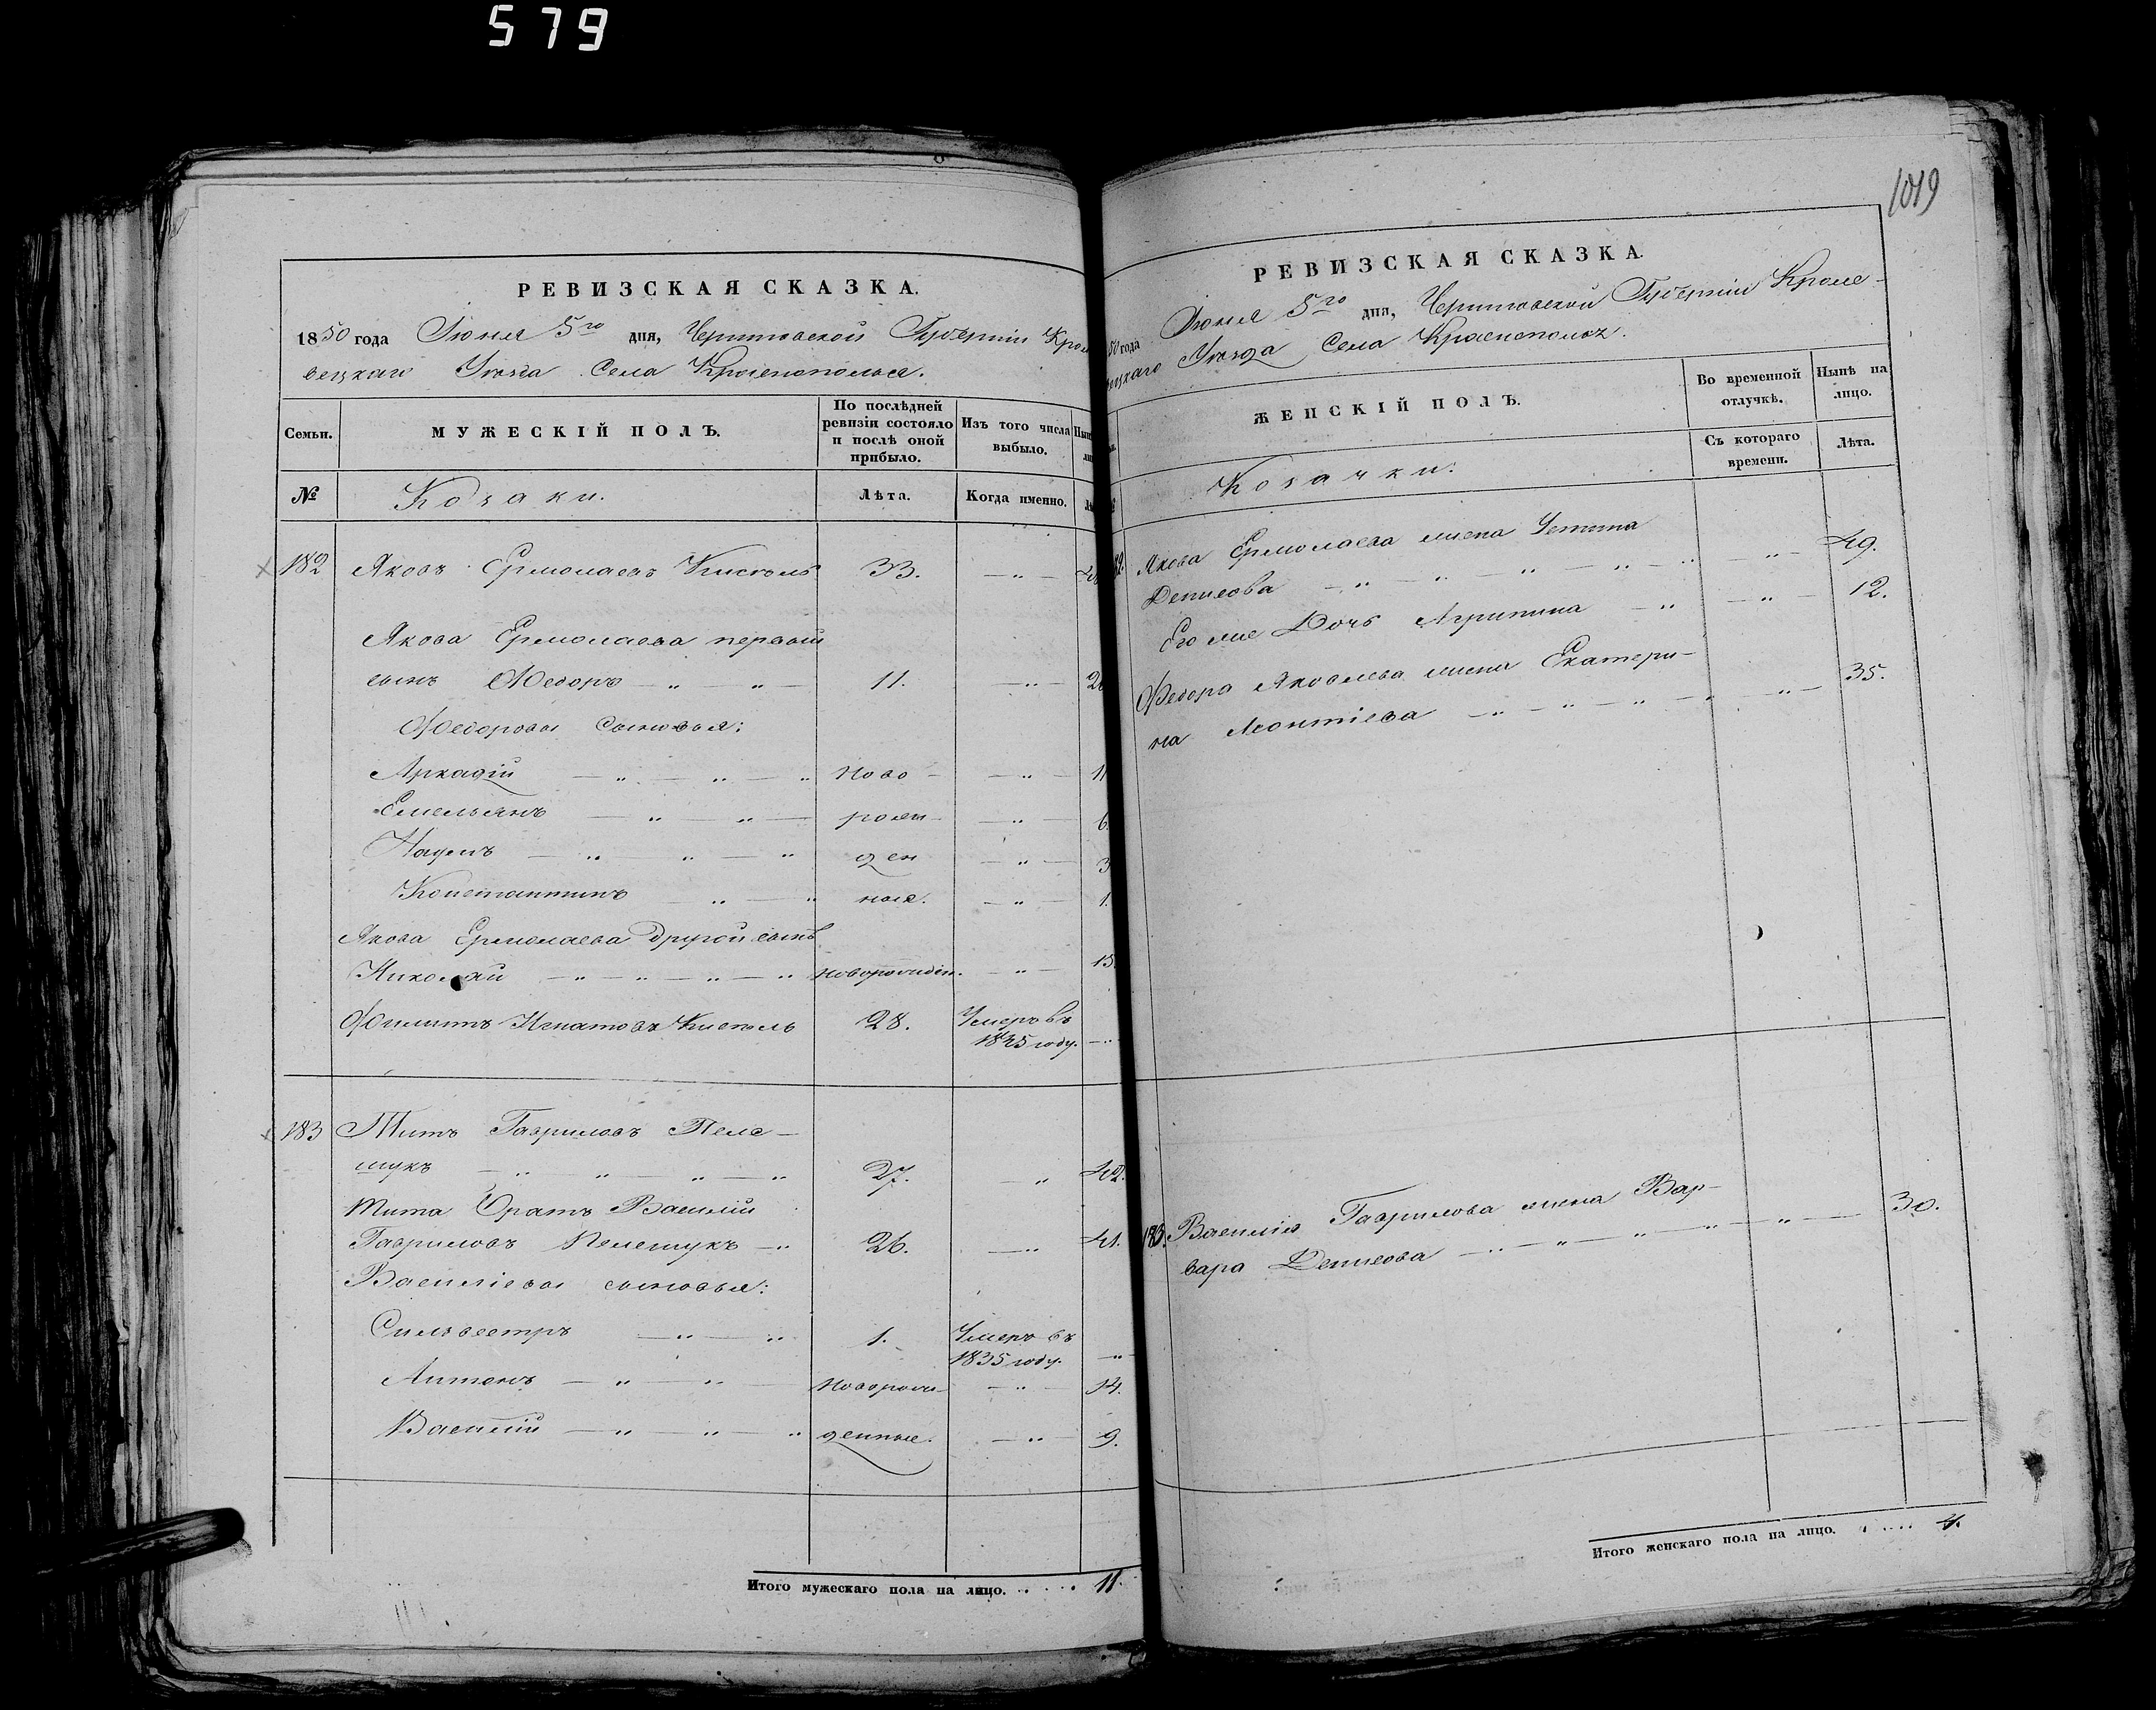 579
РЕВИЗСКАЯ СКАЗКА.
1850 года Іюня 5го дня, Черниговской Губерніи Кроле
вецкаго Уѣзда Села Краснополья.
Семьи.
МУЖЕСКІЙ ПОЛЪ.
По послѣдней ревизіи состояло и послѣ оной прибыло.
Изъ того числа выбыло.
№
Козаки.
Лѣта.
Когда именно.
182 Яковъ Ермолаевъ Кисель 33. — " —
Якова Ермолаева первый
сынъ Ѳедоръ — " — " — 11. — " —
Ѳедоровы Сыновья:
Аркадій — " — " — " ново — — " — 11
Емельянъ — " — " — рож — " — 6.
Наумъ — " — " — " ден — " — 3
Константинъ — " — " ныя. — " — 1.
Якова Ермолаева другой сынъ
Николай — " — " — " — " новорожден. — " — 15.
Филиппъ Игнатовъ Кисель 28. Умеръ въ
1835 году. — "
183 Титъ Гавриловъ Пеле—
шукъ — " — " — " — " 27. — " 42.
Тита братъ Василій
Гавриловъ Пелешукъ — " 26. — " 41.
Василіевы сыновья:
Сильвестръ — " — " 1. Умеръ въ
1835 году. — "
Антонъ — " — " — новорож— — " — 14.
Василій — " — " — " денные. — " — 9.
Итого мужескаго пола на лицо. . . . . 11.
1019
РЕВИЗСКАЯ СКАЗКА.
50 года Іюня 5го дня, Черниговской Губерніи Кроле-
вецкаго Уѣзда Села Краснополья.
ЖЕНСКІЙ ПОЛЪ.
Во временной отлучкѣ.
Нынѣ на лицо.
Съ котораго времени.
Лѣта.
Козачки.
Якова Ермолаева жена Устина
Денисова — " — " — " — " — " — " — 49.
Его же Дочь Агрипина — " — " — 12.
Ѳедора Яковлева жена Екатери—
на Леонтіева — " — " — " — " — " — 35.
183. Василія Гаврилова жена Вар—
вара Денисова — " — " — " — " — " — 30.
Итого женскаго пола на лицо. . . . . 4.